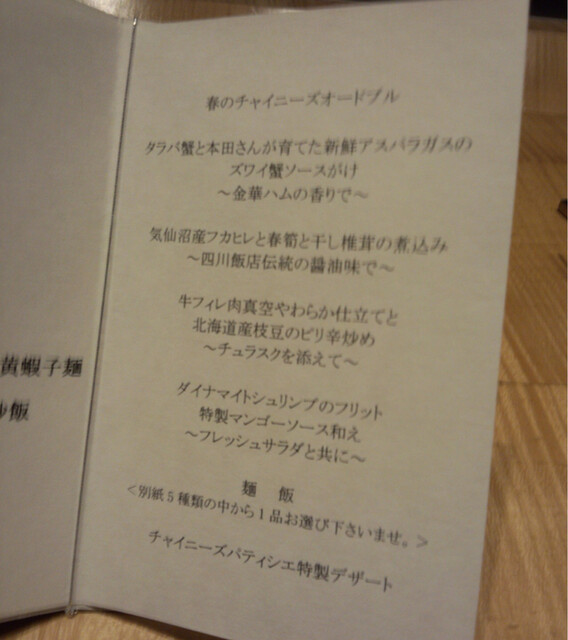 黄蝦子麺
飯
春のチャイニーズオードブル
タラバ蟹と本田さんが育てた新鮮アスパラガスの
ズワイ蟹ソースがけ
～金華ハムの香りで～
気仙沼産フカヒレと春筍と干し椎茸の煮込み
～四川飯店伝統の醤油味で～
牛フィレ肉真空やわらか仕立てと
北海道産枝豆のピリ辛炒め
～チュラスクを添えて～
ダイナマイトシュリンプのフリット
特製マンゴーソース和え
～フレッシュサラダと共に～
麺　飯
＜別紙５種類の中から１品お選び下さいませ。＞
チャイニーズパティシエ特製デザート